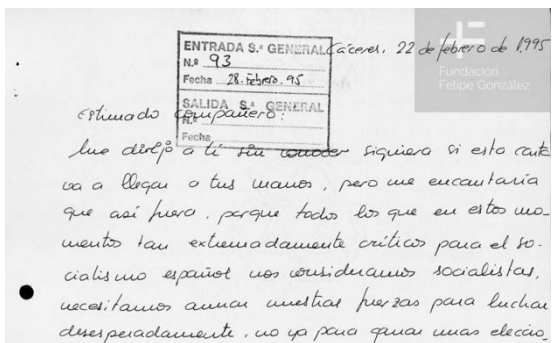 Fundación
Felipe González
ENTRADA S.ª GENERAL
N.º 93
Fecha 28. Febrero. 95
SALIDA S.ª GENERAL
N.º
Fecha
Cáceres, 22 de febrero de 1.995
Estimado compañero:
Me dirijo a ti sin conocer siquiera si esta carta
va a llegar a tus manos, pero me encantaría
que así fuera, porque todos los que en estos mo-
mentos tan extremadamente críticos para el so-
cialismo español nos consideramos socialistas,
necesitamos aunar nuestras fuerzas para luchar
desesperadamente, no ya para ganar unas eleccio-